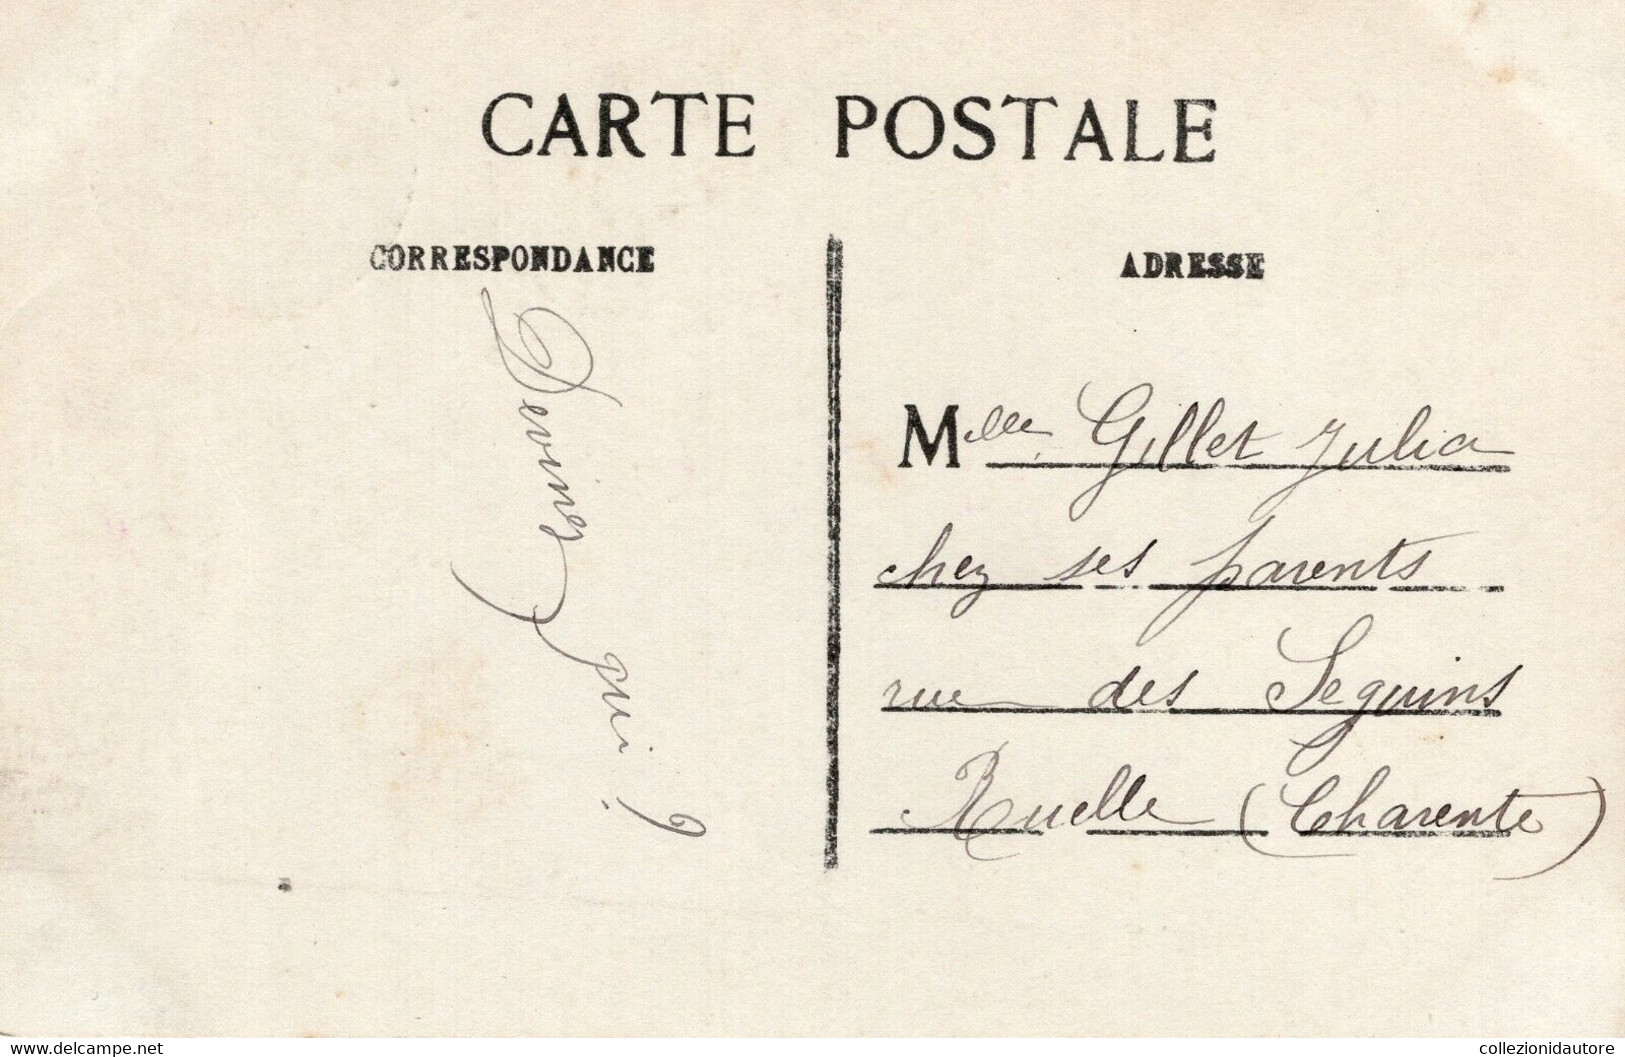 CARTE POSTALE
CORRESPONDANCE
Devinez qui ?
ADRESSE
Mlle Gillet Julia
chez ses parents
rue des Seguins
Ruelle (Charente)
www.delcampe.net
collezionidautore